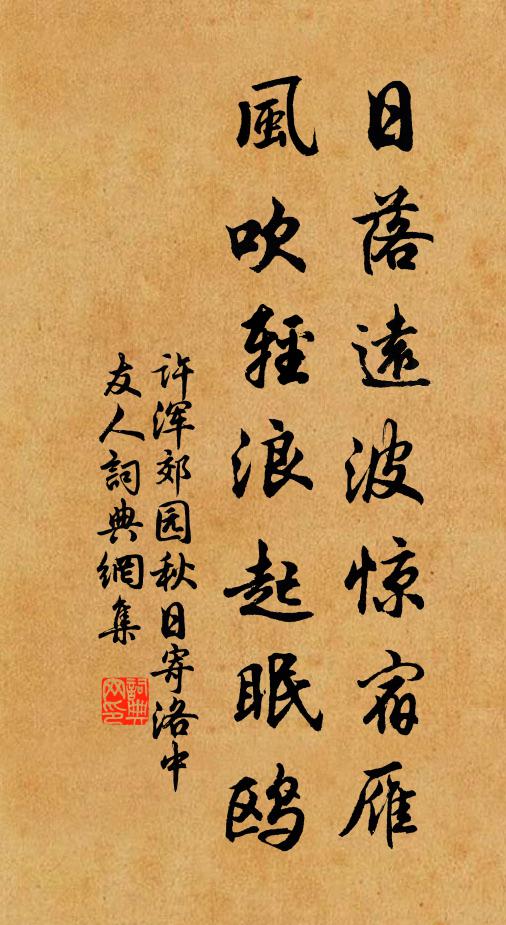 日落遠波惊宿雁
風吹輕浪起眠鸥
许浑郊园秋日寄洛中
友人詞典網集
詞典
网印